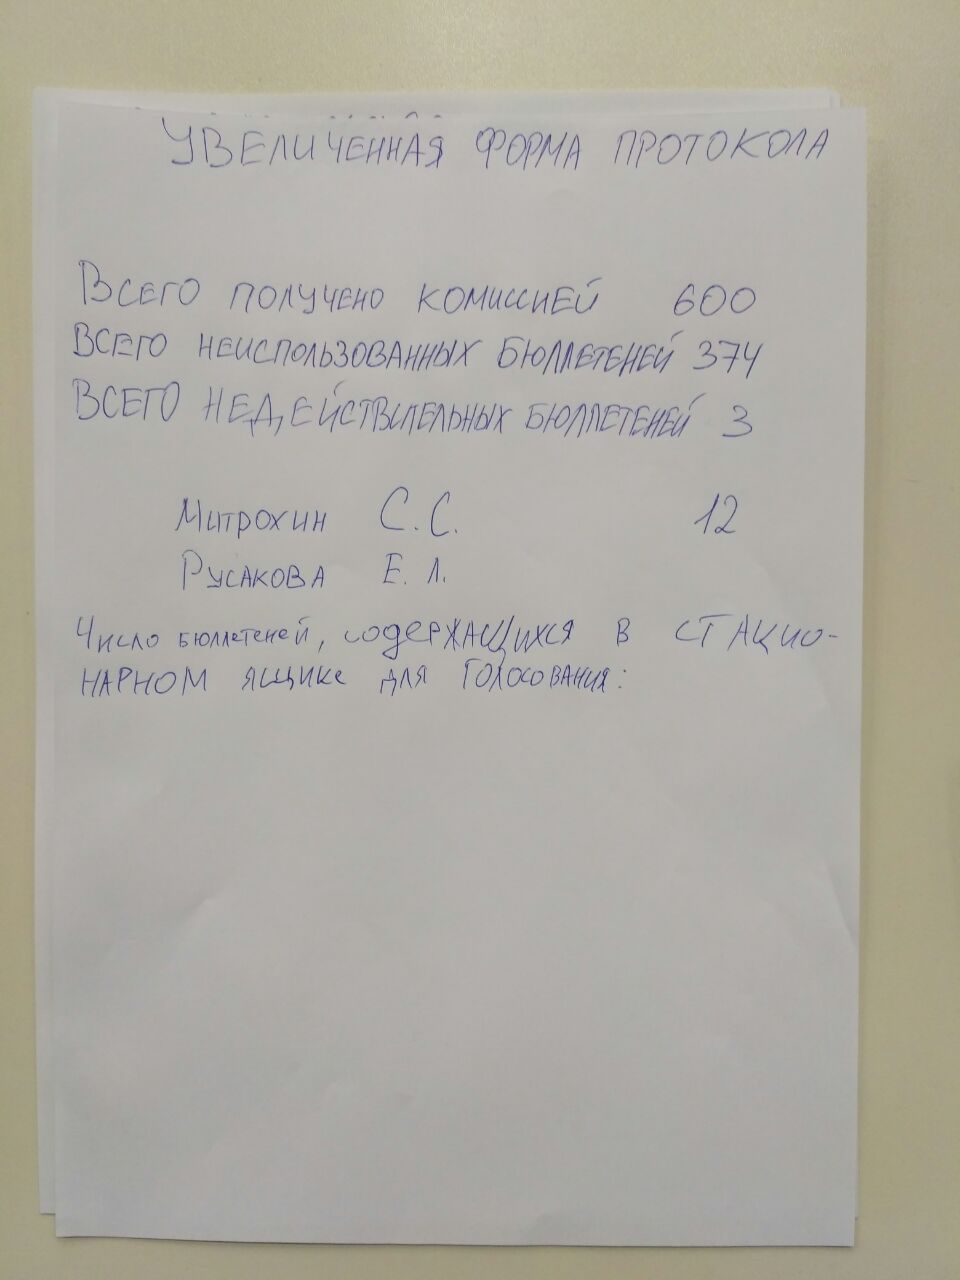 УВЕЛИЧЕННАЯ ФОРМА ПРОТОКОЛА
ВСЕГО ПОЛУЧЕНО КОМИССИЕЙ 600
ВСЕГО НЕИСПОЛЬЗОВАННЫХ БЮЛЛЕТЕНЕЙ 374
ВСЕГО НЕДЕЙСТВИТЕЛЬНЫХ БЮЛЛЕТЕНЕЙ 3
Митрохин С. С. 12
Русакова Е. Л.
Число бюллетеней, содержащихся в стацио-
нарном ящике для голосования: